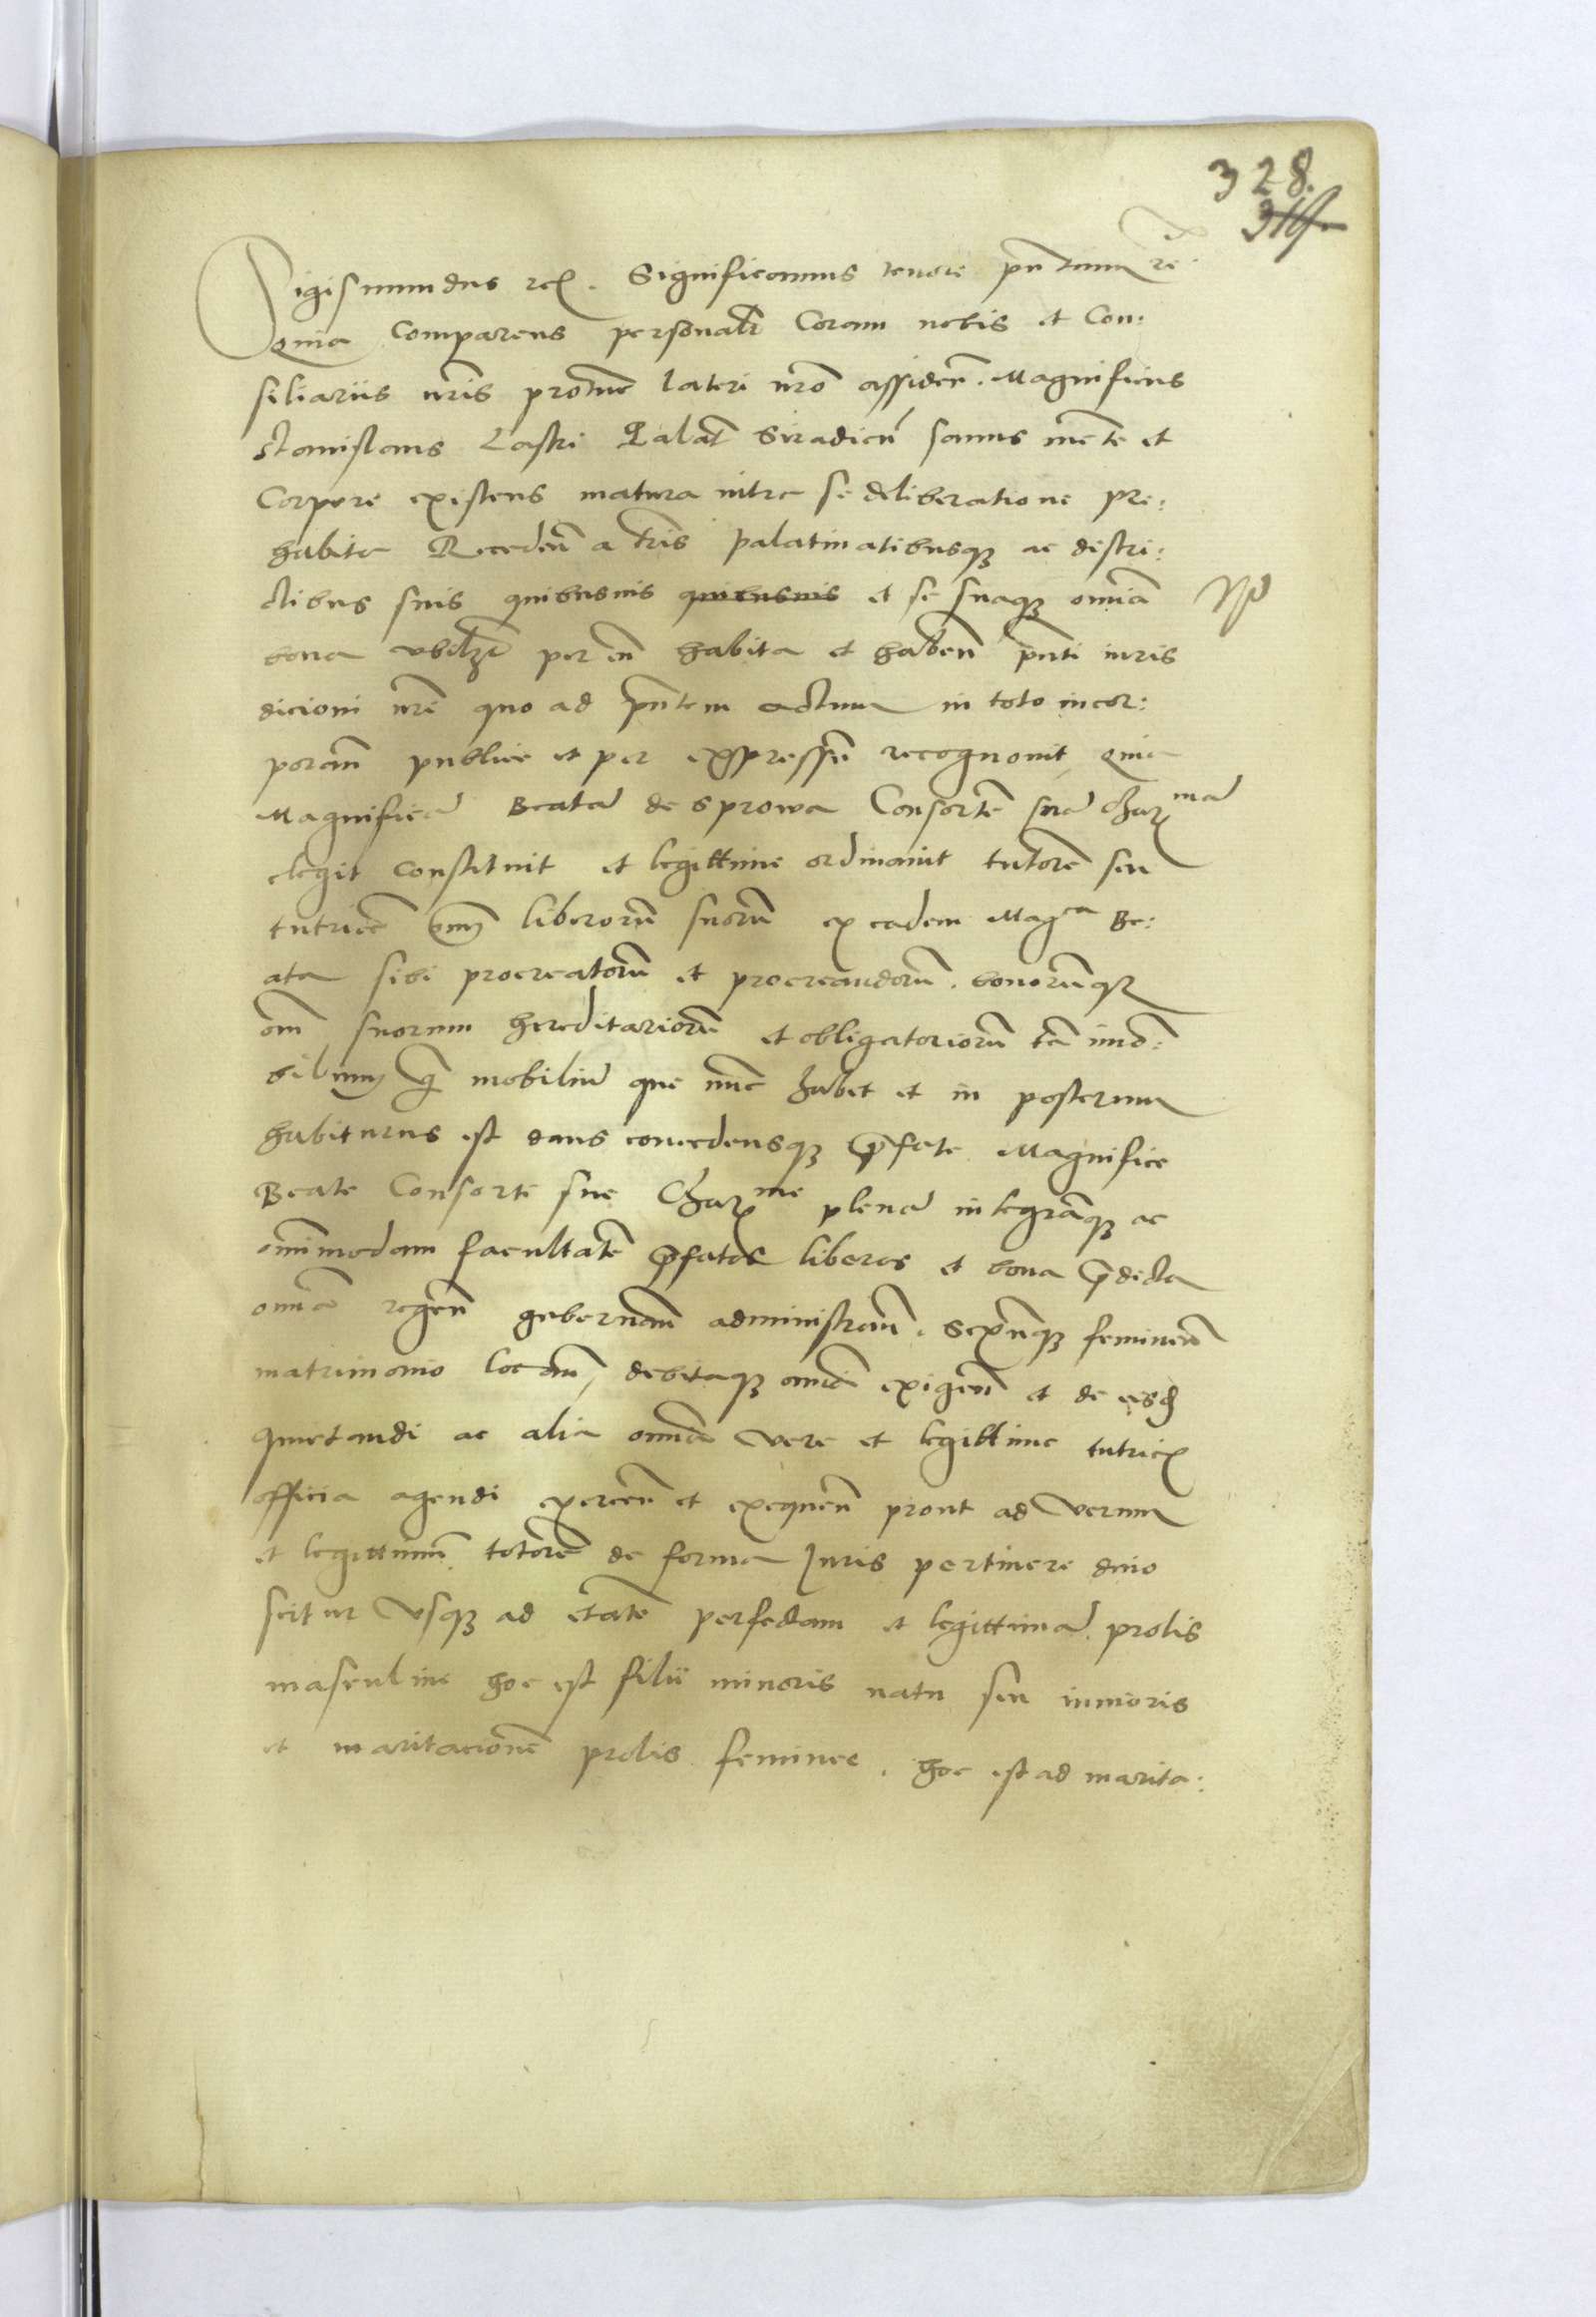 328.
Sigismundus rex. Significamus tenore pntium re.
Quia Comparens personalr Coram nobis et Con:
siliariis nris protunc lateri nro assiden. Magnificus
Stanislaus Laski Palat Siradien sanus mente et
Corpore existens matura intra se deliberatione pre:
habita Receden a tris palatinatibusq ac distri:
ctibus suis quibusuis quibusuis et se suaq omnia
bona vbilzt per eu habita et haben pnti iuris
dicioni nre quo ad pntem actum in toto incor:
poran publice et per expressum recognouit Quia
Magnifica Beata de Sprowa Consorte sua Charma
elegit constituit et legittime ordinauit tutore seu
tutrice omn liberoru suoru ex eadem Magca Be:
ata sibi procreatoru et procreandoru. bonorumq
om suorum hereditarioru et obligatorioru ta imo:
bilium q mobiliu que nunc habet et in posterum
habiturus est dans concedensq pfate Magnifice
Beate Consorte sue Charme plena integramq ac
omnimodam facultate pfatos liberos et bona pdicta
omnia regen gubernan administran. Sexumq femineu
matrimonio locan, debitaq omnia exigen et de eisd
quietandi ac alia omnia vere et legittime tutricis
officia agendi exercen et exequen prout ad verum
et legittimu totore de forma Juris pertinere dino
scitur vsq ad etate perfectam et legittima prolis
masculine hoc est filii minoris natu seu iunioris
et maritacione prolis feminee. hoc est ad marita: